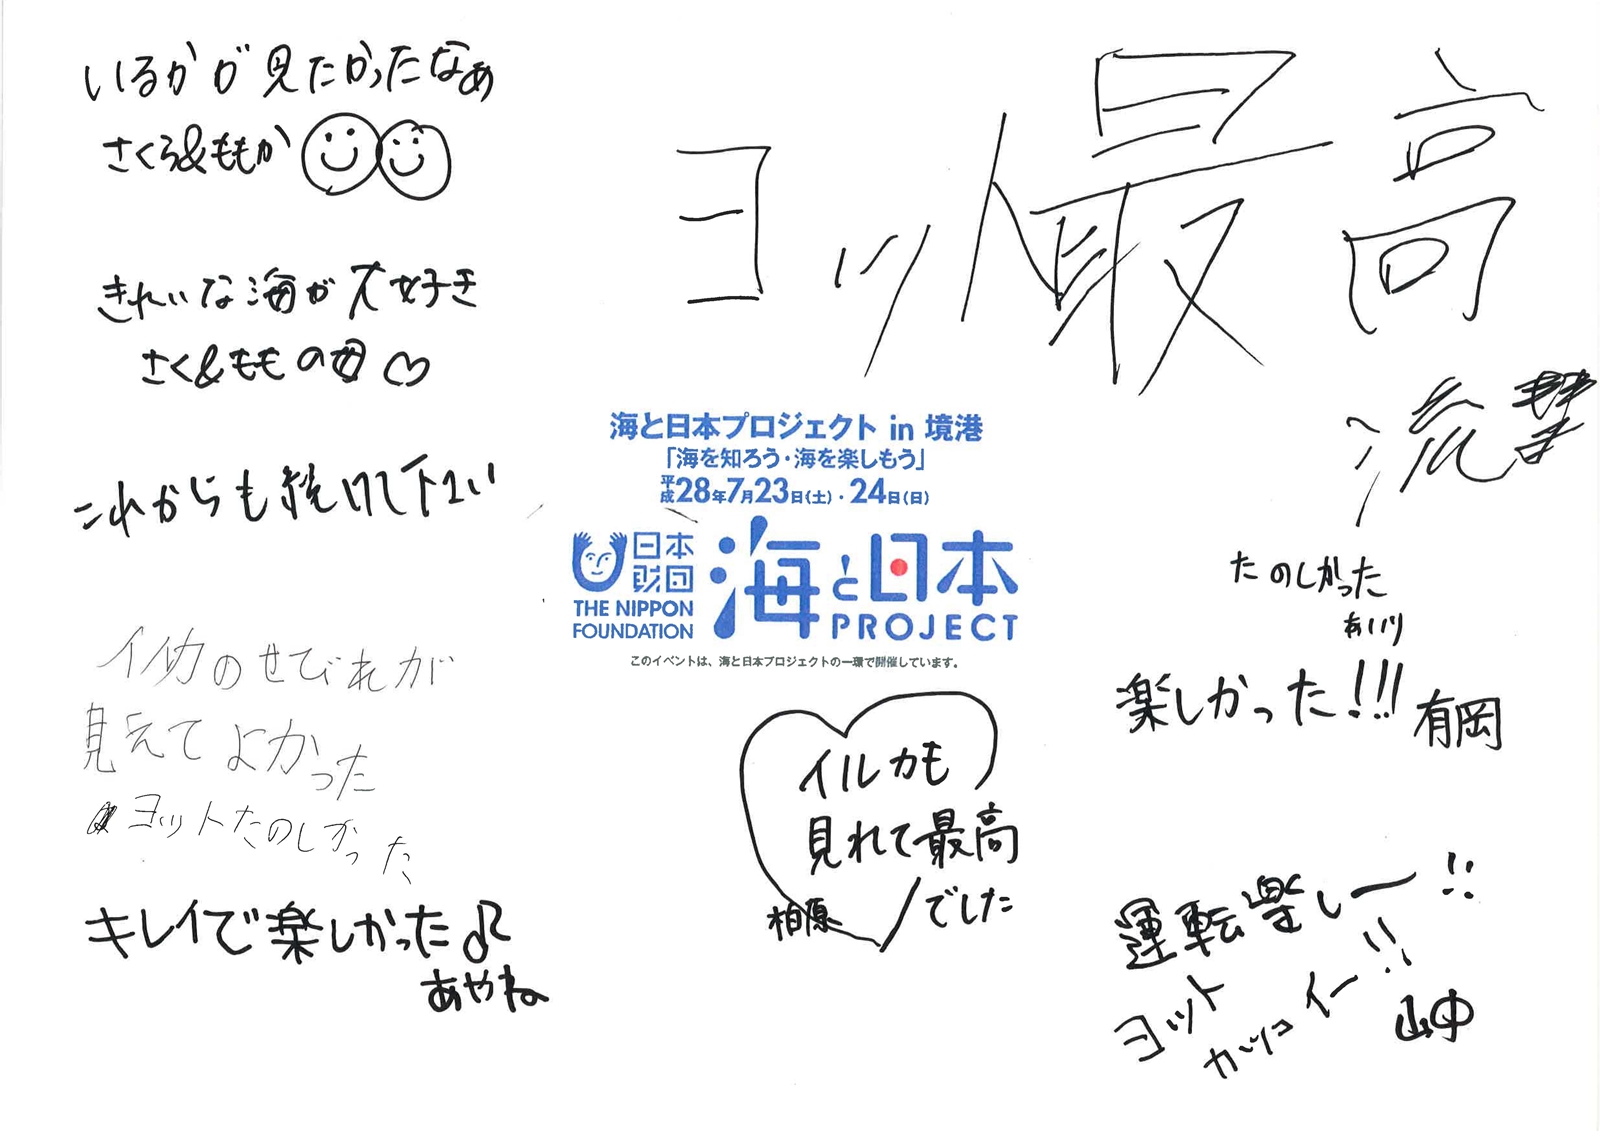 いるかが見たかったなぁ
さくら&ももか
きれいな海が大好き
さく&ももの母
これからも続けて下さい
イルカのせびれが
見えてよかった
ヨットたのしかった
キレイで楽しかった♪
あやね
ヨット最高
海と日本プロジェクト in 境港
「海を知ろう・海を楽しもう」
平成28年7月23日(土)・24日(日)
日本
財団
THE NIPPON
FOUNDATION
海と日本
PROJECT
このイベントは、海と日本プロジェクトの一環で開催しています。
イルカも
見れて最高
でした
柏原
たのしかった
あいり
楽しかった!!!
有岡
運転楽しー!!
ヨット
カッコイー!!
山中